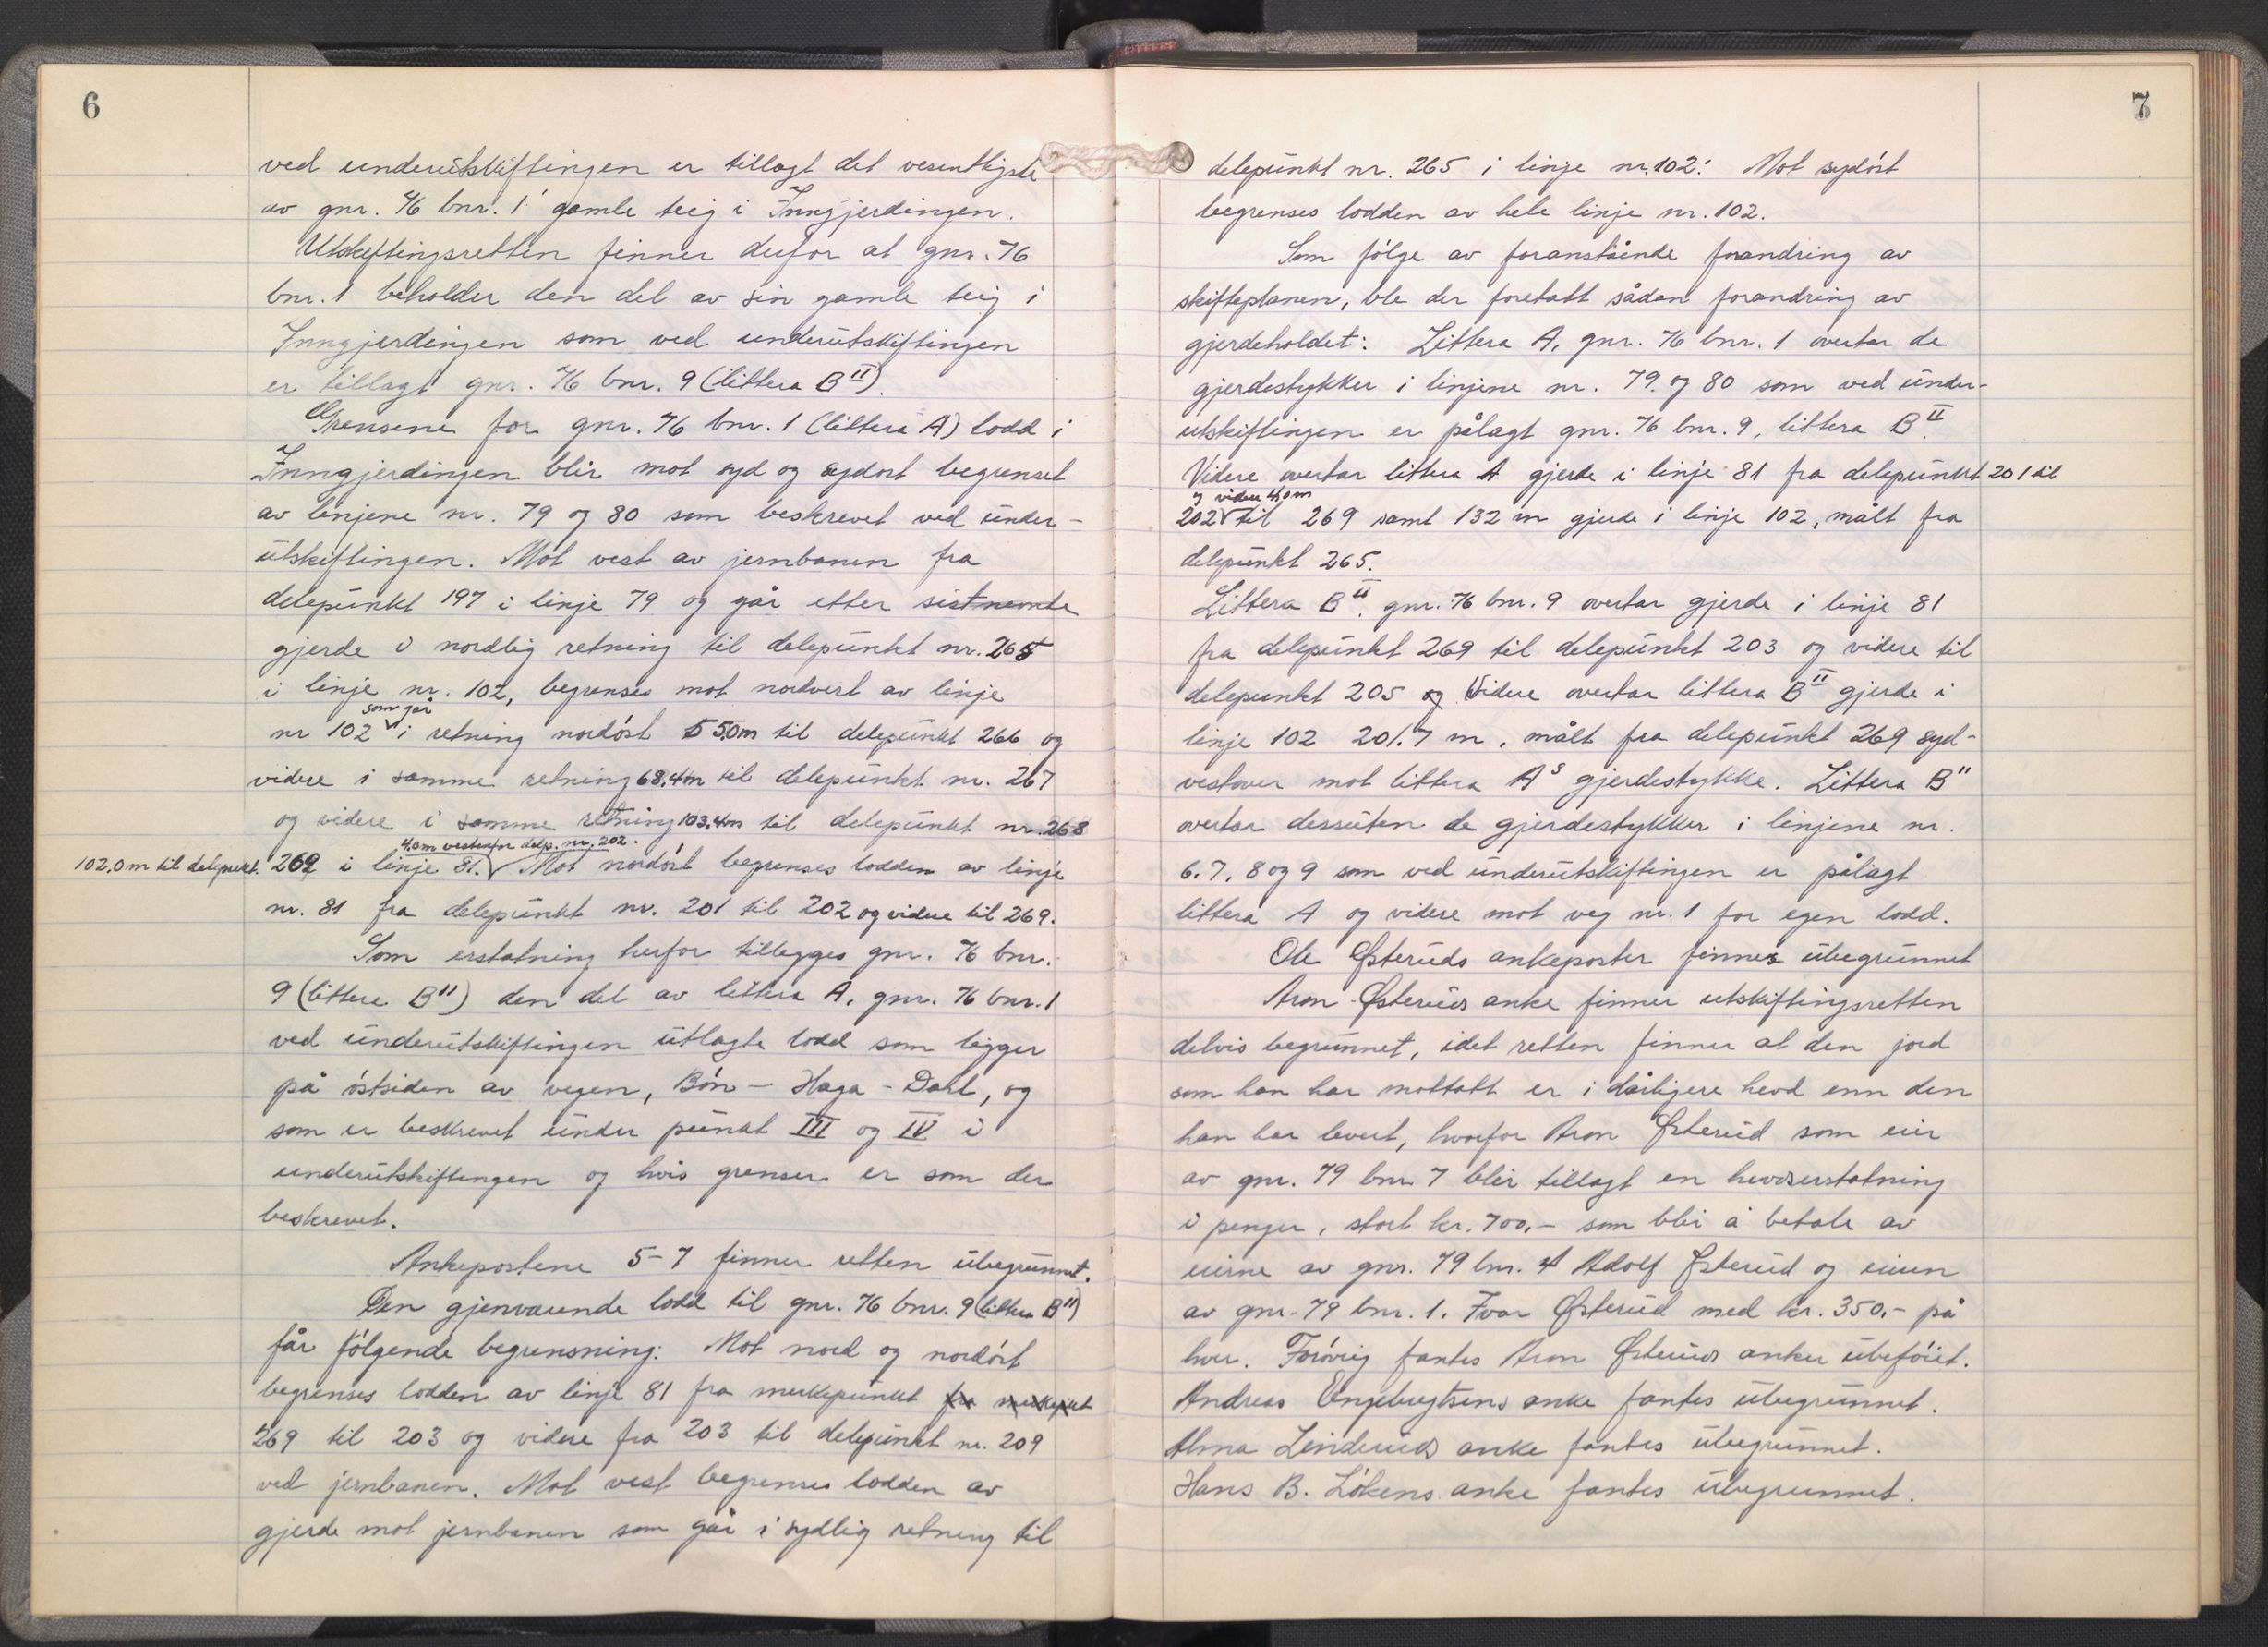 6
ved underutskiftingen er tillagt det vesentligste
av gnr. 76 bnr. 1 gamle teig i Inngjerdingen.
Utskiftingsretten finner derfor at gnr. 76
bnr. 1 beholder den del av sin gamle teig i
Inngjerdingen som ved underutskiftingen
er tillagt gnr. 76 bnr. 9 (littera B II).
Grensene for gnr. 76 bnr. 1 (littera A) lodd i
Inngjerdingen blir mot syd og sydost begrenset
av linjene nr. 79 og 80 som beskrevet ved under-
utskiftingen. Mot vest av jernbanen fra
delepunkt 197 i linje 79 og går etter sistnevnte
gjerde i nordlig retning til delepunkt nr. 265
i linje nr. 102, begrenses mot nordvest av linje
som går
nr 102 i retning nordøst 55.0m til delepunkt 266 og
videre i samme retning 68,4m til delepunkt nr. 267
og videre i samme retning 103.4m til delepunkt nr. 268
4.0m vestenfor delp. nr. 202.
102.0m til delpunkt. 269 i linje 81. Mot nordøst begrenses lodden av linje
nr. 81 fra delepunkt nr. 201 til 202 og videre til 269.
Som erstatning herfor tillegges gnr. 76 bnr.
9 (littera B II) den del av littera A, gnr. 76 bnr. 1
ved underutskiftingen utlagte lodd som ligger
på østsiden av vegen, Bøn - Haga - Dahl, og
som er beskrevet under punkt III og IV i
underutskiftingen og hvis grenser er som der
beskrevet.
Ankepostene 5-7 finner retten ubegrunnet.
Den gjenværende lodd til gnr. 76 bnr. 9 (littera B II)
får følgende begrensning: Mot nord og nordøst
begrenses lodden av linje 81 fra merkepunkt fra merkepunkt
269 til 203 og videre fra 203 til delepunkt nr. 209
ved jernbanen. Mot vest begrenses lodden av
gjerde mot jernbanen som går i sydlig retning til
7
delepunkt nr. 265 i linje nr. 102. Mot sydøst
begrenses lodden av hele linje nr. 102.
Som følge av foranstående forandring av
skifteplanen, ble der foretatt sådan forandring av
gjerdeholdet: Littera A, gnr. 76 bnr. 1 overtar de
gjerdestykker i linjene nr. 79 og 80 som ved under-
utskiftingen er pålagt gnr. 76 bnr. 9, littera B II.
Videre overtar littera A gjerde i linje 81 fra delepunkt 201 til
og videre 4,0m
202 til 269 samt 132 m gjerde i linje 102, målt fra
delepunkt 265.
Littera B II. gnr. 76 bnr. 9 overtar gjerde i linje 81
fra delepunkt 269 til delepunkt 203 og videre til
delepunkt 205 og Videre overtar littera B II gjerde i
linje 102 201.7 m, målt fra delepunkt 269 syd-
vestover mot littera A s gjerdestykke. Littera B II
overtar dessuten de gjerdestykker i linjene nr.
6. 7, 8 og 9 som ved underutskiftingen er pålagt
littera A og videre mot veg nr. 1 for egen lodd.
Ole Østeruds ankeposter finnes ubegrunnet
Aron Østeruds anke finner utskiftingsretten
delvis begrunnet, idet retten finner at den jord
som han har mottatt er i dårligere hevd enn den
han har levert, hvorfor Aron Østerud som eier
av gnr. 79 bnr. 7 blir tillagt en hevdserstatning
i penger, stort kr. 700,- som blir å betale av
eierne av gnr. 79 bnr. 4 Adolf Østerud og eieren
av gnr. 79 bnr. 1. Ivar Østerud med kr. 350.- på
hver. Forøvrig fantes Aron Østeruds anker ubeføiet.
Andreas Engebregtsens anke fantes ubegrunnet.
Alma Linderuds anke fantes ubegrunnet.
Hans B. Løkens anke fantes ubegrunnet.